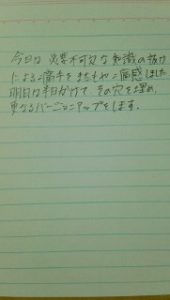 今日は 必要不可欠な知識の抜け
による痛手をまたもや痛感しました
明日は半日かけて その穴を埋め、
更なるバージョンアップをします。